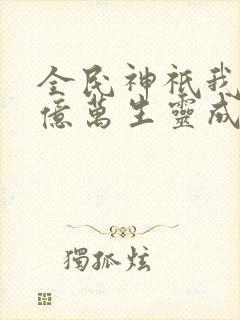 全民神祇我
億萬生靈成
獨孤炫